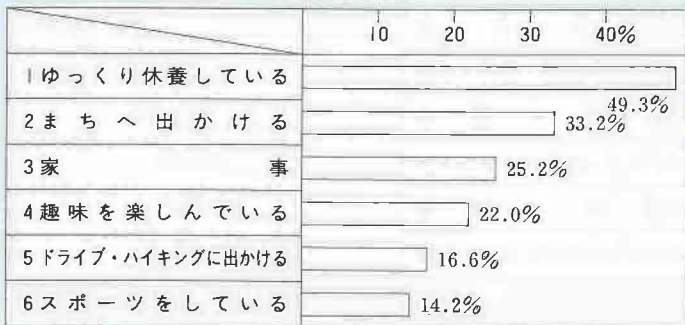 10 20 30 40%
1ゆっくり休養している
49.3%
2まちへ出かける
33.2%
3家事
25.2%
4趣味を楽しんでいる
22.0%
5ドライブ・ハイキングに出かける
16.6%
6スポーツをしている
14.2%